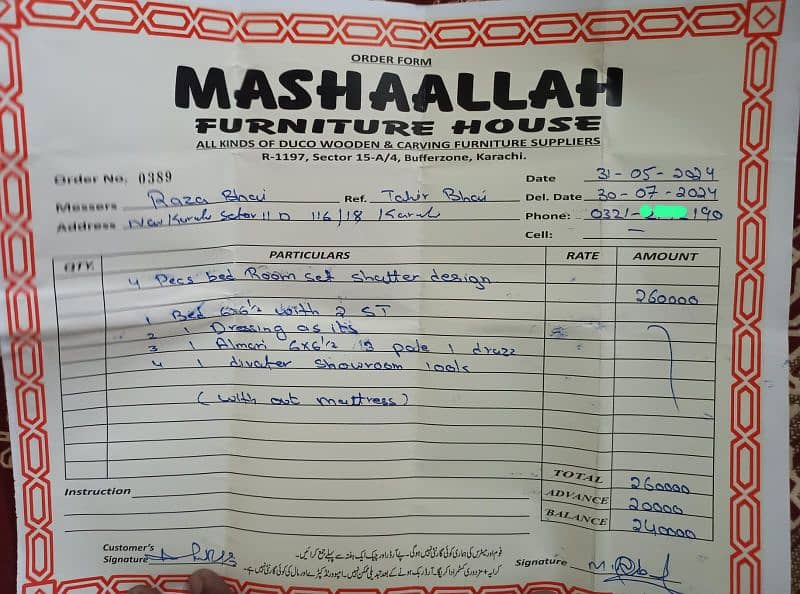 ORDER FORM
MASHAALLAH
FURNITURE HOUSE
ALL KINDS OF DUCO WOODEN & CARVING FURNITURE SUPPLIERS
R-1197, Sector 15-A/4, Bufferzone, Karachi.
Order No. 0389 Date 31-05-2024
Messers Raza Bhai Ref. Tahir Bhai Del. Date 30-07-2024
Address Sector 11 D 116/18 Phone: 0321- 190
Cell: —
QTY. PARTICULARS RATE AMOUNT
4 Pecs bed Room set shutter design 260000
1 Bed 6x6 1/2 with 2 ST
2 1 Dressing as its
3 1 Almari 6x6 1/2 pale 1 draz
4 1 divater showroom
(with out mattress)
TOTAL 260000
Instruction ADVANCE 20000
BALANCE 240000
فوم اور میٹرس کی ہماری کوئی گارنٹی نہیں ہوگی۔
Customer's
Signature Signature